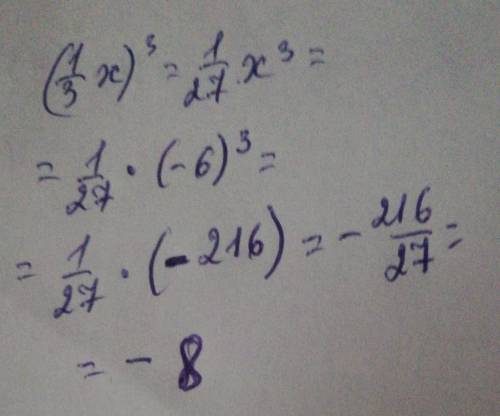 (1/3 x)³ = 1/27 x³ =
= 1/27 · (-6)³ =
= 1/27 · (-216) = - 216/27 =
= - 8